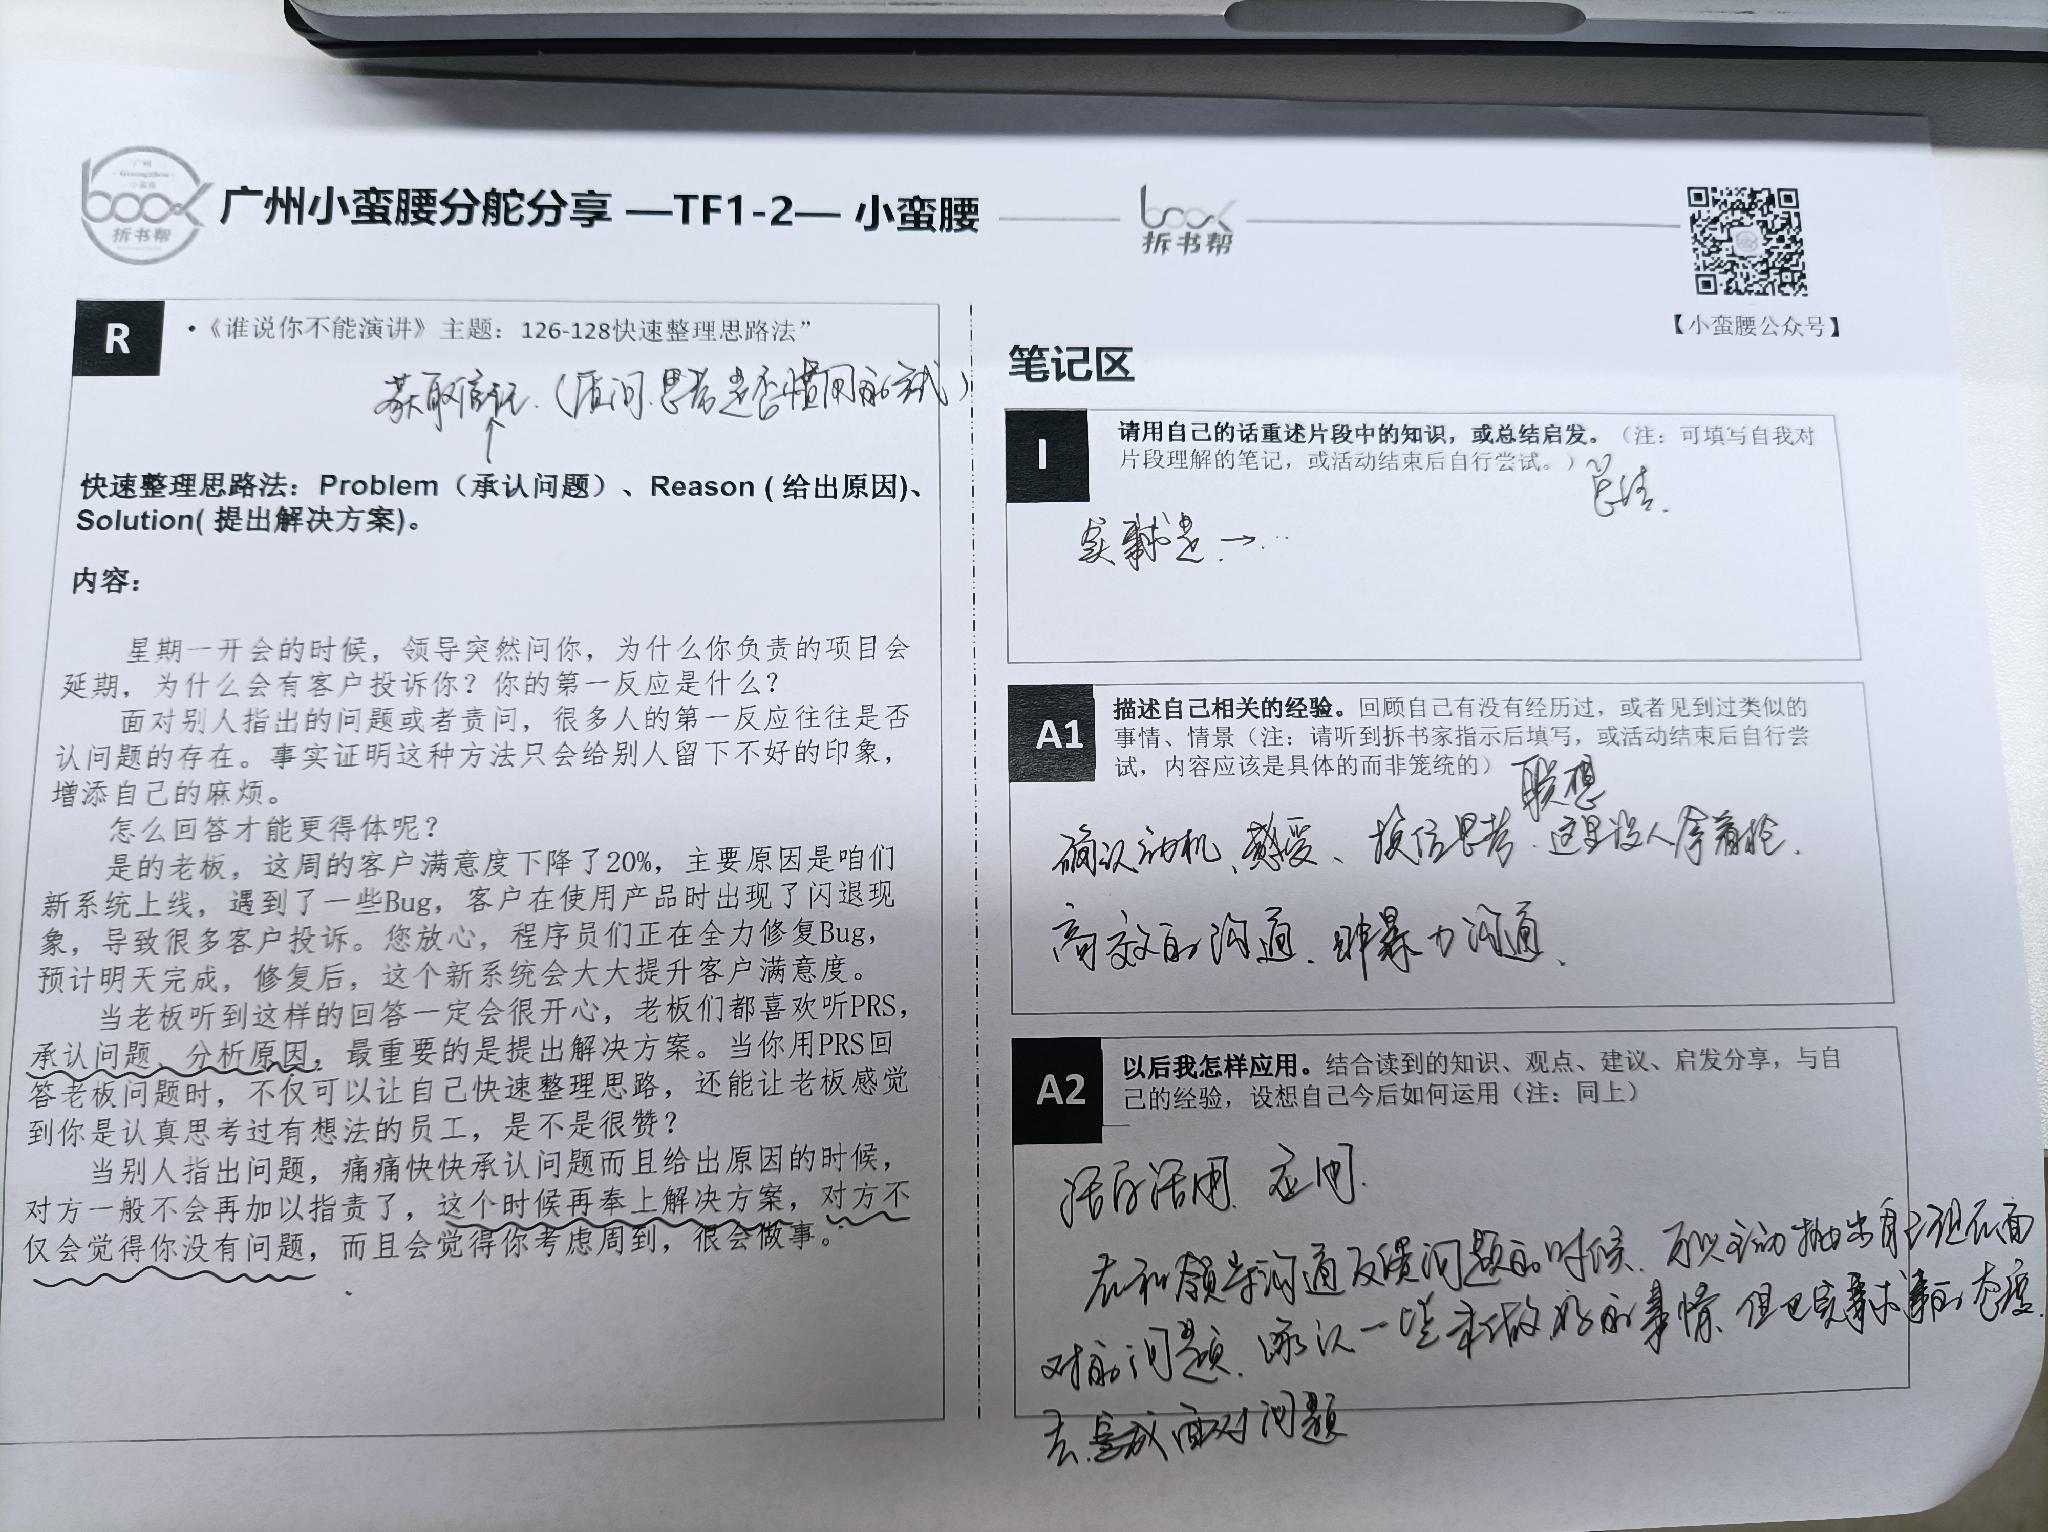 广州小蛮腰分舵分享 —TF1-2— 小蛮腰
book
拆书帮
book
拆书帮
【小蛮腰公众号】
R
•《谁说你不能演讲》主题：126-128快速整理思路法”
获取信 (质问.思考是否惯用的方式)
快速整理思路法：Problem（承认问题）、Reason ( 给出原因)、
Solution( 提出解决方案)。
内容：
星期一开会的时候，领导突然问你，为什么你负责的项目会
延期，为什么会有客户投诉你？你的第一反应是什么？
面对别人指出的问题或者责问，很多人的第一反应往往是否
认问题的存在。事实证明这种方法只会给别人留下不好的印象，
增添自己的麻烦。
怎么回答才能更得体呢？
是的老板，这周的客户满意度下降了20%，主要原因是咱们
新系统上线，遇到了一些Bug，客户在使用产品时出现了闪退现
象，导致很多客户投诉。您放心，程序员们正在全力修复Bug，
预计明天完成，修复后，这个新系统会大大提升客户满意度。
当老板听到这样的回答一定会很开心，老板们都喜欢听PRS，
承认问题、分析原因，最重要的是提出解决方案。当你用PRS回
答老板问题时，不仅可以让自己快速整理思路，还能让老板感觉
到你是认真思考过有想法的员工，是不是很赞？
当别人指出问题，痛痛快快承认问题而且给出原因的时候，
对方一般不会再加以指责了，这个时候再奉上解决方案，对方不
仅会觉得你没有问题，而且会觉得你考虑周到，很会做事。
笔记区
I
请用自己的话重述片段中的知识，或总结启发。（注：可填写自我对
片段理解的笔记，或活动结束后自行尝试。）
总结.
实事求是.→...
A1
描述自己相关的经验。回顾自己有没有经历过，或者见到过类似的
事情、情景（注：请听到拆书家指示后填写，或活动结束后自行尝
试，内容应该是具体的而非笼统的）
联想
确认动机、感受、换位思考.这里没人拿着枪.
高效的沟通.非暴力沟通、
A2
以后我怎样应用。结合读到的知识、观点、建议、启发分享，与自
己的经验，设想自己今后如何运用（注：同上）
活学活用.应用.
在和领导沟通反馈问题的时候.可以主动抛出自己现在面
对的问题.承认一些未做好的事情、但也实事求是的态度.
去 面对问题